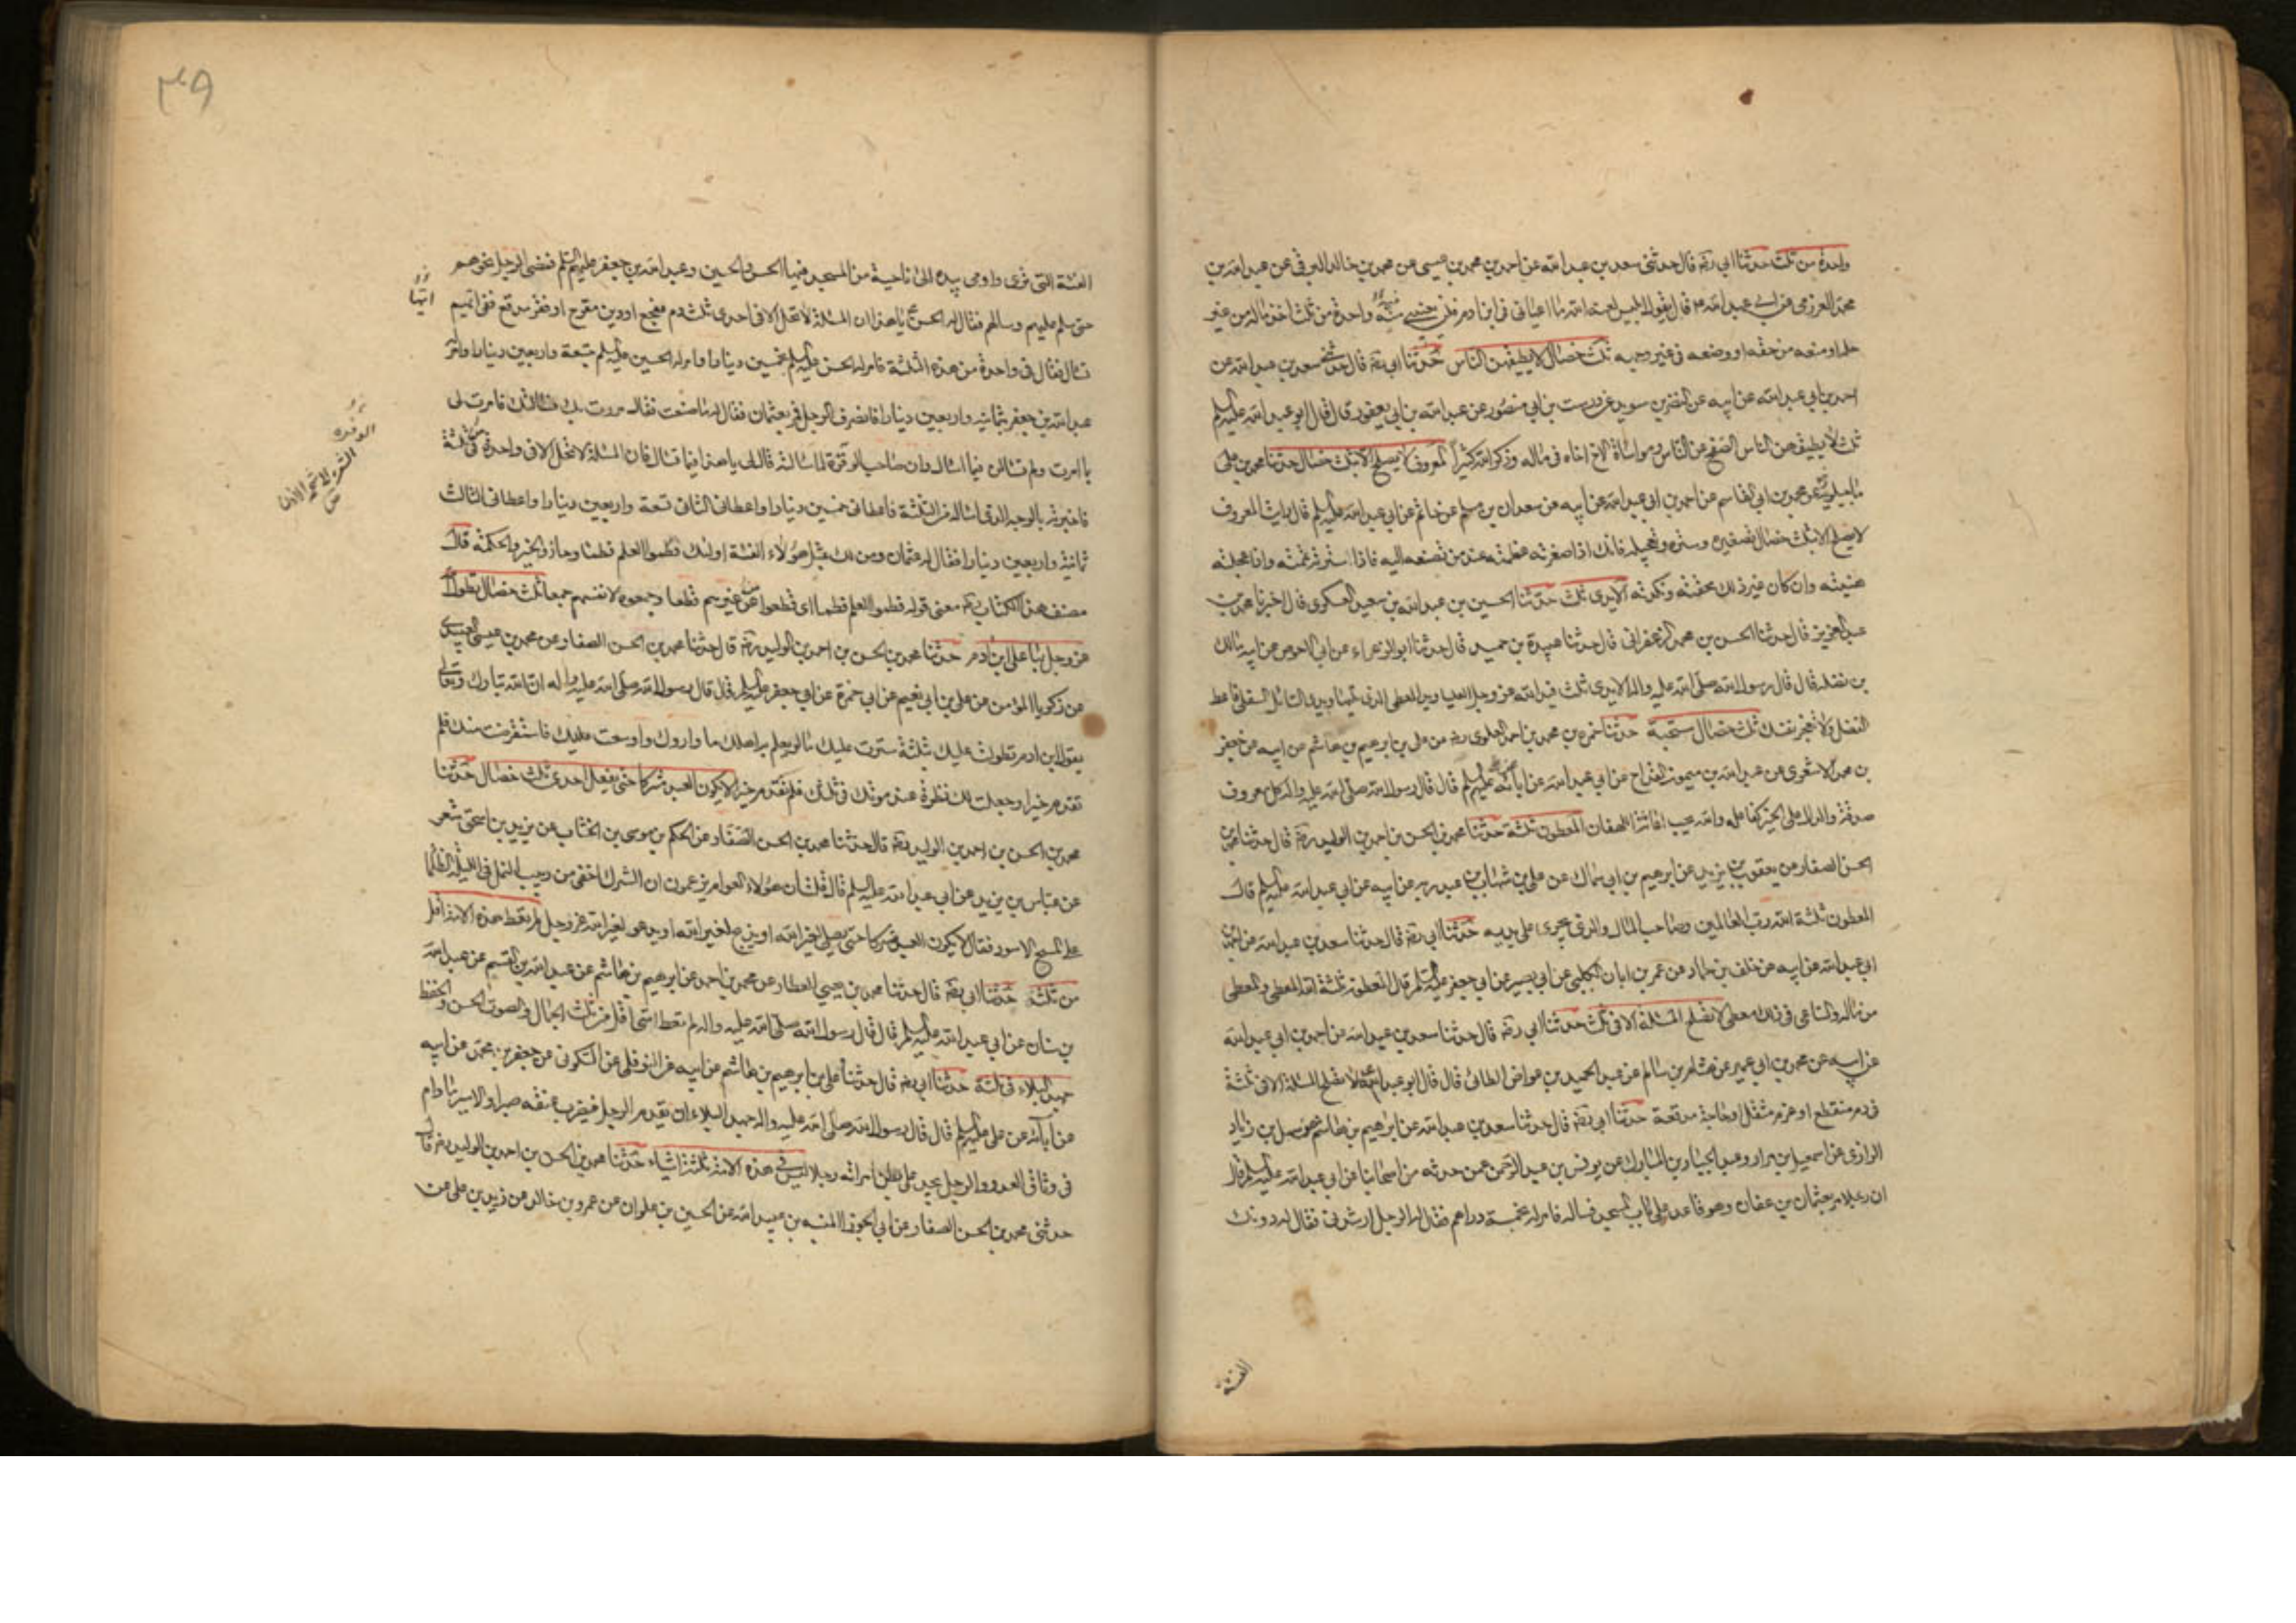 واحدة من ثلث حدثنا ابي ره قال حدثنى سعد بن عبد الله عن احمد بن محمد بن عيسى عن محمد بن خالد البرقى عن عبد الله بن
محمد العرزمى عن ابي عبد الله ع قال يقول ابليس لعنه الله ما اعيانى فى ابن ادم فلن يعيينى منه واحدة من ثلث اخذ مال من غير
حله او منعه من حقه او وضعه فى غير وجهه ثلث خصال لا يطيقهن الناس حدثنا ابى ره قال حدثنى سعد بن عبد الله عن
احمد بن ابي عبد الله عن ابيه عن النضر بن سويد عن درست بن ابي منصور عن عبد الله بن ابي يعفور قال قال ابو عبد الله عليه السلم
ثلث لا يطيقهن الناس الصفح عن الناس ومواساة الاخ اخاه فى ماله وذكر الله كثيراً المعروف لا يصلح الا بثلث خصال حدثنا محمد بن على
ماجيلويه عن محمد بن ابى القاسم عن احمد بن ابى عبد الله عن ابيه عن سعدان بن مسلم عن حاتم عن ابى عبد الله عليه السلم قال رايت المعروف
لا يصلح الا بثلث خصال تصغيره وستره وتعجيله فانك اذا صغرته عظمته عند من تصنعه اليه فاذا سترته تممته واذا عجلته
هنيته وان كان غير ذلك محقته ونكدته الايدى ثلث حدثنا الحسين بن عبد الله بن سعيد العسكرى قال اخبرنا محمد بن
عبد العزيز قال حدثنا الحسن بن محمد الزعفرانى قال حدثنا عبيدة بن حميد قال حدثنا ابو الزعراء عن ابى الاحوص عن ابيه مالك
بن نضله قال قال رسول الله صلى الله عليه واله الايدى ثلث فيد الله عز وجل العليا ويد المعطى التى تليها ويد السائل السفلى فاعط
الفضل ولا تعجز نفسك ثلث خصال مستحبة حدثنا حمزه بن محمد بن احمد العلوى ره عن على بن ابرهيم بن هاشم عن ابيه عن جعفر
بن محمد الاشعرى عن عبد الله بن ميمون القداح عن ابي عبد الله عن ابائه عليهم السلم قال قال رسول الله صلى الله عليه واله كل معروف
صدقة والدال على الخير كفاعله والله يحب اغاثة اللهفان المعطون ثلثة حدثنا محمد بن الحسن بن احمد بن الوليد ره قال حدثنا محمد بن
الحسن الصفار عن يعقوب بن يزيد عن ابرهيم بن ابى سماك عن على بن شهاب بن عبد ربه عن ابيه عن ابى عبد الله عليه السلم قال
المعطون ثلثة الله رب العالمين وصاحب المال والذى يجرى على يديه حدثنا ابى ره قال حدثنا سعد بن عبد الله عن احمد بن
ابى عبد الله عن ابيه عن خلف بن حماد عن عمر بن ابان الكلبى عن ابى بصير عن ابى جعفر عليه السلم قال المعطون ثلثة الله المعطى والمعطى
من ماله والساعى فى ذلك معطى لا تصلح المسئلة الا فى ثلث حدثنا ابى ره قال حدثنا سعد بن عبد الله عن احمد بن ابى عبد الله
عن ابيه عن محمد بن ابى عمير عن هشام بن سالم عن عبد الحميد بن عواض الطائى قال قال ابو عبد الله لا تصلح المسئلة الا فى ثلثة
فى دم منقطع او غرم مثقل او حاجة مدقعة حدثنا ابى ره قال حدثنا سعد بن عبد الله عن ابرهيم بن هاشم عن سهل بن زياد
الرازى عن اسمعيل بن مرار وعبد الجبار بن المبارك عن يونس بن عبد الرحمن عمن حدثه من اصحابنا عن ابى عبد الله عليه السلم قال
ان رجلا مر بعثمان بن عفان وهو قاعد على باب المسجد فساله فامر له بخمسة دراهم فقال له الرجل ارشدنى فقال له دونك
الفتية
٣٩
الفتية التى ترى واومى بيده الى ناحية من المسجد فيها الحسن والحسين وعبد الله بن جعفر عليهم السلم فمضى الرجل نحوهم
حتى سلم عليهم وسالهم فقال له الحسن ع يا هذا ان المسئلة لا تحل الا فى احدى ثلث دم مفجع او دين مقرح او فقر مدقع ففى ايهم
تسال فقال فى واحدة من هذه الثلثة فامر له الحسن عليه السلم بخمسين دينارا وامر له الحسين عليه السلم بتسعة واربعين دينارا وامر
عبد الله بن جعفر بثمانية واربعين دينارا فانصرف الرجل فمر بعثمان فقال له ما صنعت فقال مررت بك فسالتك فامرت لى
بما امرت ولم تسالنى فيما اسال وان صاحب الوفرة لما سالته قال لى يا هذا فيما تسال فان المسئلة لا تحل الا فى واحدة من ثلثة
فاخبرته بالوجه الذى اساله من الثلثة فاعطانى خمسين دينارا واعطانى الثانى تسعة واربعين دينارا واعطانى الثالث
ثمانية واربعين دينارا فقال له عثمان ومن لك بمثل هؤلاء الفتية اولئك فطموا العلم فطما وحازوا الخير والحكمة قال
مصنف هذا الكتاب ره معنى قوله فطموا العلم فطما اى قطعوا عن غيرهم قطعا وجمعوه لانفسهم جمعا ثلث خصال تطول الله
عز وجل بها على ابن ادم حدثنا محمد بن الحسن بن احمد بن الوليد ره قال حدثنا محمد بن الحسن الصفار عن محمد بن عيسى العبيد
عن زكريا المؤمن عن على بن ابى نعيم عن ابى حمزة عن ابى جعفر عليه السلم قال قال رسول الله صلى الله عليه واله ان الله تبارك وتعالى
يقول ابن ادم تطولت عليك بثلثة سترت عليك مالو يعلم به اهلك ما واروك واوسعت عليك فاستقرضت منك فلم
تقدم خيرا وجعلت لك نظرة عند موتك فى ثلثك فلم تقدم خيرا لا يكون العبد مشركا حتى يفعل احدى ثلث خصال حدثنا
محمد بن الحسن بن احمد بن الوليد ره قال حدثنا محمد بن الحسن الصفار عن الحكم بن موسى بن الخشاب عن يزيد بن اسحق شعر
عن عباس بن يزيد عن ابى عبد الله عليه السلم قال قلت ان هؤلاء العوام يزعمون ان الشرك اخفى من دبيب النمل فى الليلة الظلما
على المسح الاسود فقال لا يكون العبد مشركا حتى يصلى لغير الله او يذبح لغير الله او يدعو لغير الله عز وجل لم تعط هذه الامة اقل
من ثلثة حدثنا ابى ره قال حدثنا محمد بن يحيى العطار عن محمد بن احمد عن ابرهيم بن هاشم عن عبد الله بن القسم عن عبد الله
بن سنان عن ابى عبد الله عليه السلم قال قال رسول الله صلى الله عليه واله لم تعط امتى اقل من ثلث الجمال والصوت الحسن والحفظ
جهد البلاء فى ثلثة حدثنا ابى ره قال حدثنا على بن ابرهيم بن هاشم عن ابيه عن النوفلى عن السكونى عن جعفر بن محمد عن ابيه
عن ابائه عن على عليه السلم قال قال رسول الله صلى الله عليه واله جهد البلاء ان يقدم الرجل فيضرب عنقه صبرا والاسير ما دام
فى وثاق العدو والرجل يجد على بطن امراته رجلا ليس فى هذه الامة ثلثة اشياء حدثنا محمد بن الحسن بن احمد بن الوليد ره قال
حدثنى محمد بن الحسن الصفار عن ابى الجوزا المنبه بن عبيد الله عن الحسين بن علوان عن عمرو بن خالد عن زيد بن على عن
ايها
الوفره
الشعر الى شحمة الاذن